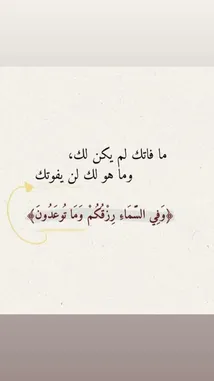 ما فاتك لم يكن لك،
وما هو لك لن يفوتك
﴿وَفِي السَّمَاءِ رِزْقُكُمْ وَمَا تُوعَدُونَ﴾